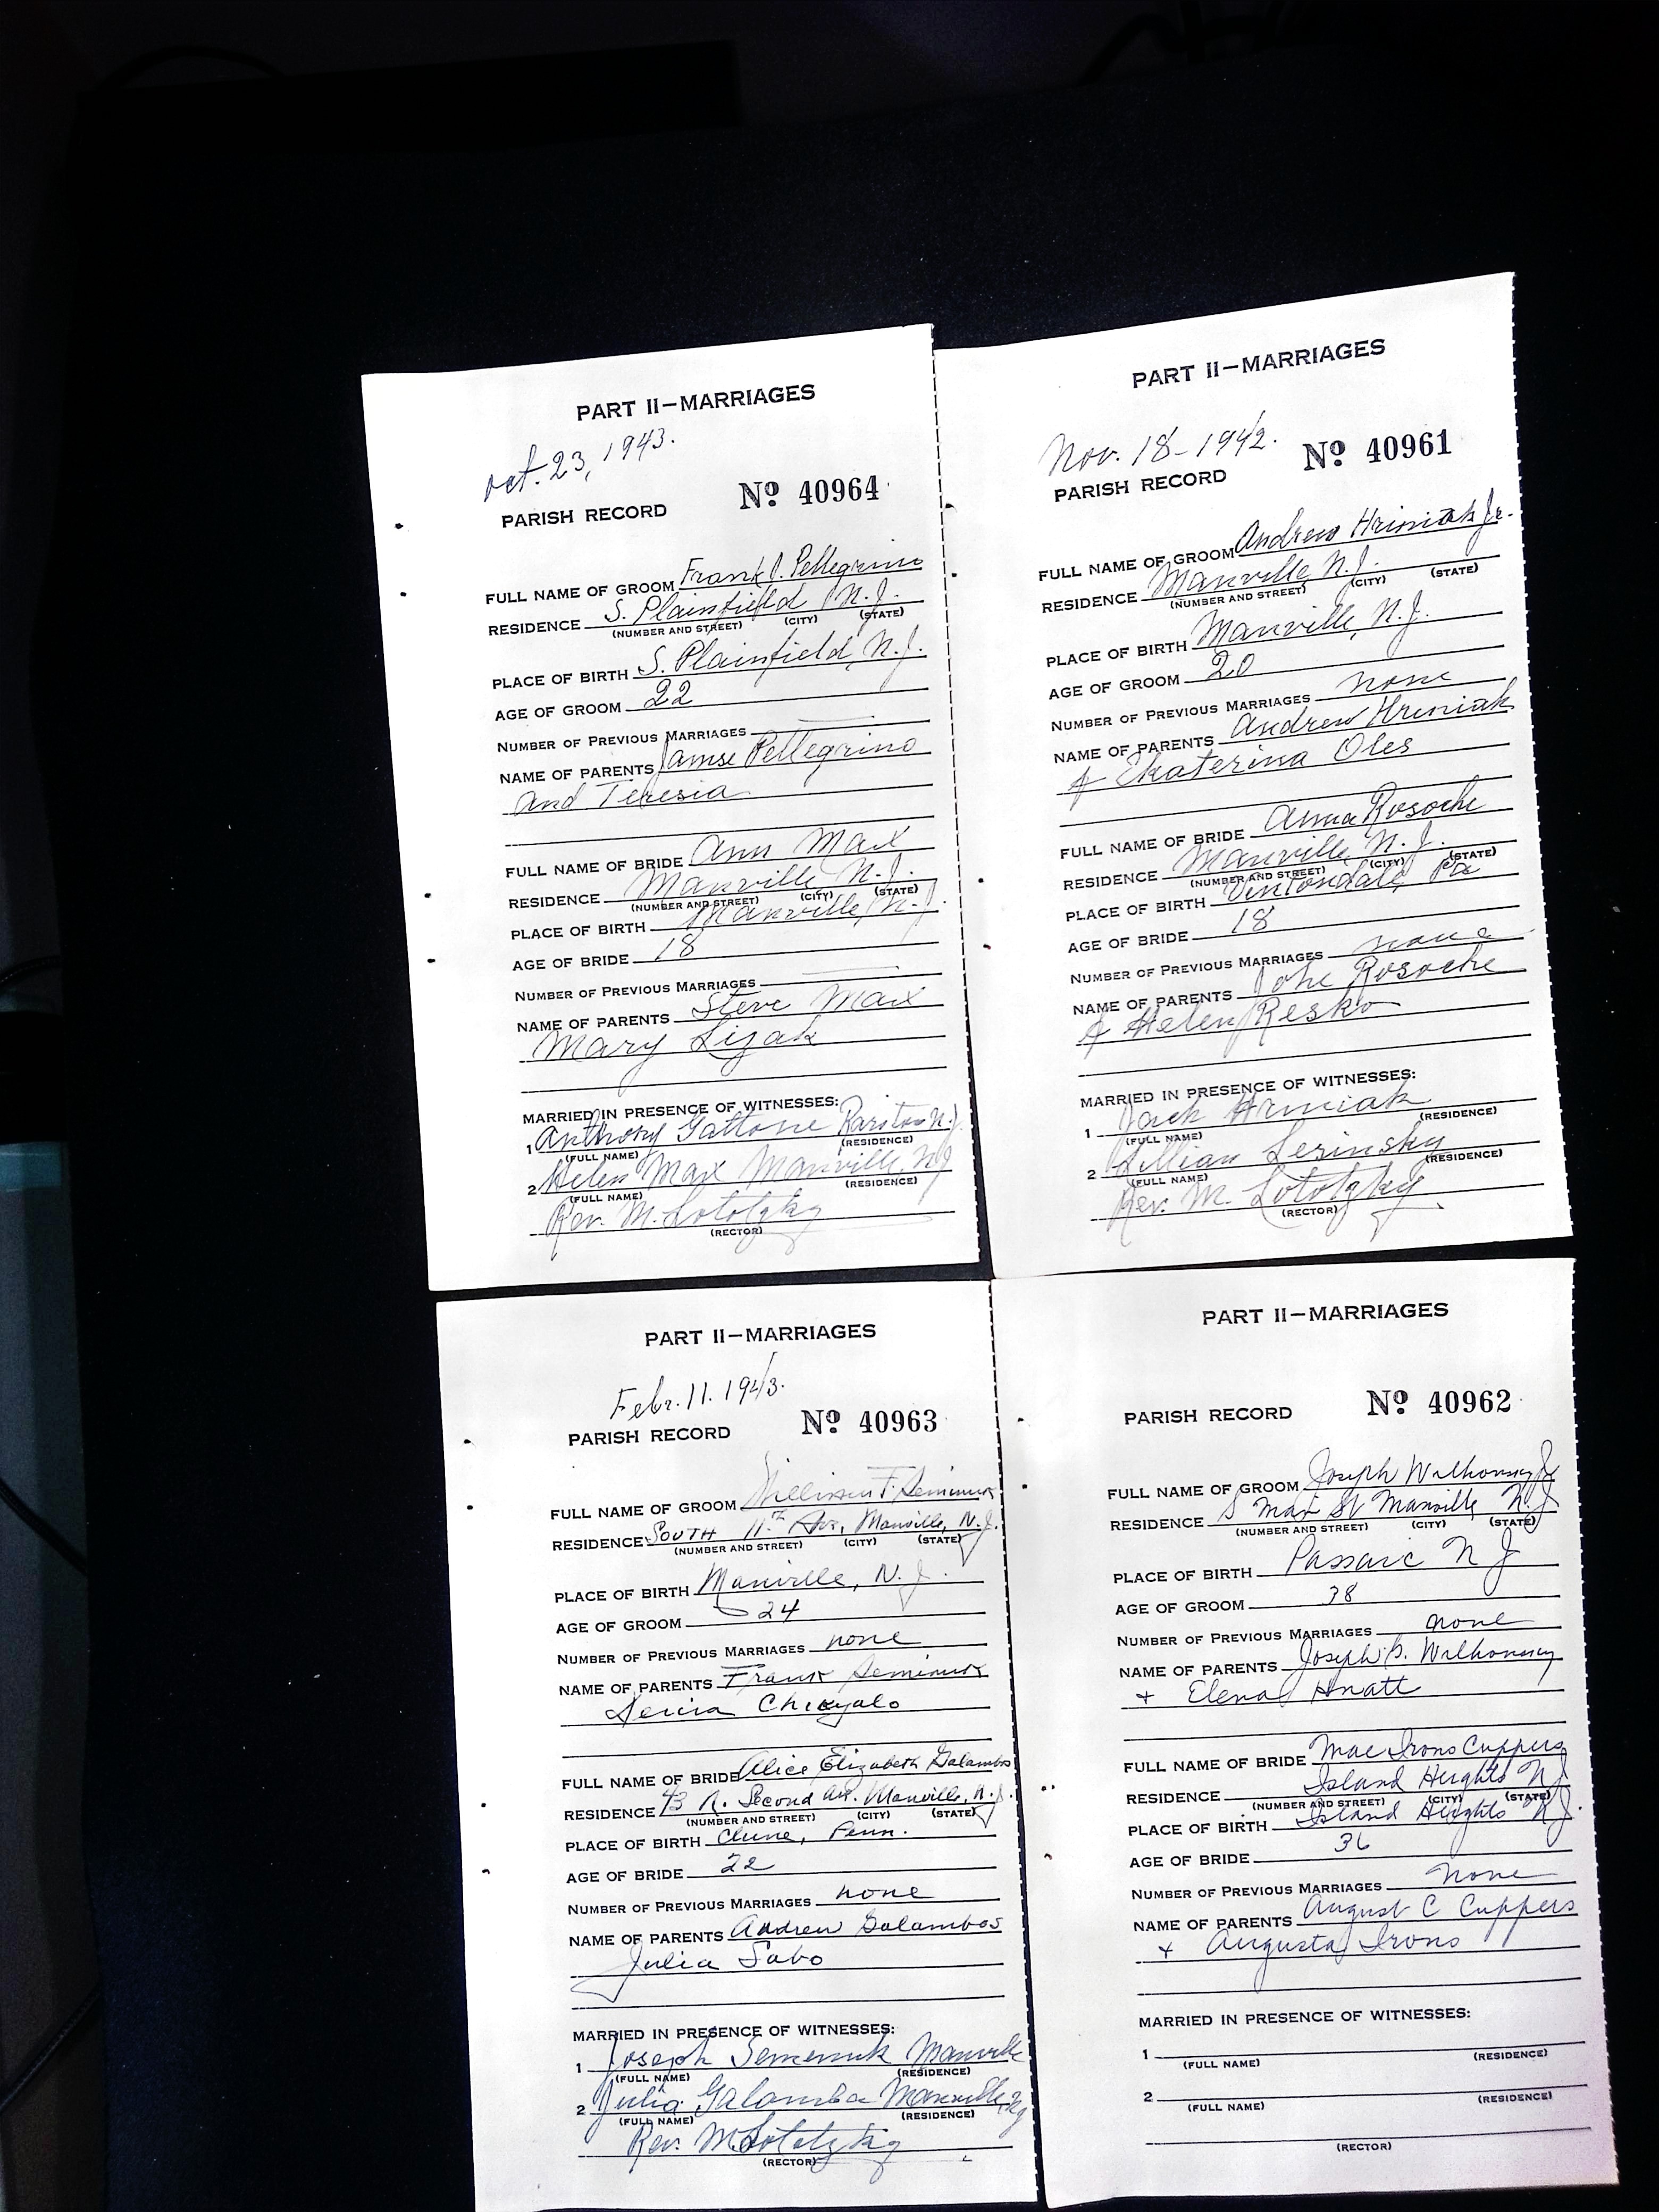 PART II—MARRIAGES
Oct. 23, 1943.
PARISH RECORD Nº 40964
FULL NAME OF GROOM Frank J. Pellegrino
RESIDENCE S. Plainfield N.J.
(NUMBER AND STREET) (CITY) (STATE)
PLACE OF BIRTH S. Plainfield, N.J.
AGE OF GROOM 22
NUMBER OF PREVIOUS MARRIAGES
NAME OF PARENTS Jamse Pellegrino
and Teresia
FULL NAME OF BRIDE Ann Max
RESIDENCE Manville N.J.
(NUMBER AND STREET) (CITY) (STATE)
PLACE OF BIRTH Manville, N.J.
AGE OF BRIDE 18
NUMBER OF PREVIOUS MARRIAGES
NAME OF PARENTS Steve Max
Mary Lizak
MARRIED IN PRESENCE OF WITNESSES:
1 Anthony Gattone Raritan N.J.
(FULL NAME) (RESIDENCE)
2 Helen Max Manville, NJ
(FULL NAME) (RESIDENCE)
Rev. M. Lototzky
(RECTOR)
PART II—MARRIAGES
Nov. 18-1942.
PARISH RECORD Nº 40961
FULL NAME OF GROOM Andrew Hriniak Jr.
RESIDENCE Manville, N.J.
(NUMBER AND STREET) (CITY) (STATE)
PLACE OF BIRTH Manville, N.J.
AGE OF GROOM 20
NUMBER OF PREVIOUS MARRIAGES none
NAME OF PARENTS Andrew Hreniak
& Ekaterina Oles
FULL NAME OF BRIDE Anna Rosoche
RESIDENCE Manville, N.J.
(NUMBER AND STREET) (CITY) (STATE)
PLACE OF BIRTH Vintondale, Pa
AGE OF BRIDE 18
NUMBER OF PREVIOUS MARRIAGES none
NAME OF PARENTS John Rosoche
& Helen Resko
MARRIED IN PRESENCE OF WITNESSES:
1 Jack Hrniak
(FULL NAME) (RESIDENCE)
2 Lillian Lesinsky
(FULL NAME) (RESIDENCE)
Rev. M. Lototzky
(RECTOR)
PART II—MARRIAGES
Febr. 11. 1943.
PARISH RECORD Nº 40963
FULL NAME OF GROOM William F. Semenuk
RESIDENCE SOUTH 11th Ave, Manville, N.J.
(NUMBER AND STREET) (CITY) (STATE)
PLACE OF BIRTH Manville, N.J.
AGE OF GROOM 24
NUMBER OF PREVIOUS MARRIAGES none
NAME OF PARENTS Frank Semenuk
Chicyalo
FULL NAME OF BRIDE Alice Elizabeth Galambos
RESIDENCE 43 N. Second Av. Manville, N.J.
(NUMBER AND STREET) (CITY) (STATE)
PLACE OF BIRTH Clune, Penn.
AGE OF BRIDE 22
NUMBER OF PREVIOUS MARRIAGES none
NAME OF PARENTS Andrew Galambos
Julia Sabo
MARRIED IN PRESENCE OF WITNESSES:
1 Joseph Semenuk Manville
(FULL NAME) (RESIDENCE)
2 Julia Galambo Manville, NJ
(FULL NAME) (RESIDENCE)
Rev. M Lototzky
(RECTOR)
PART II—MARRIAGES
PARISH RECORD Nº 40962
FULL NAME OF GROOM Joseph Wilhousky Jr
RESIDENCE S Main St Manville, N.J
(NUMBER AND STREET) (CITY) (STATE)
PLACE OF BIRTH Passaic N J
AGE OF GROOM 38
NUMBER OF PREVIOUS MARRIAGES none
NAME OF PARENTS Joseph Wilhousky
+ Elena Hnatt
FULL NAME OF BRIDE Mae Irons Cuppers
RESIDENCE Island Heights NJ
(NUMBER AND STREET) (CITY) (STATE)
PLACE OF BIRTH Island Heights NJ.
AGE OF BRIDE 36
NUMBER OF PREVIOUS MARRIAGES none
NAME OF PARENTS August C Cuppers
+ Augusta Irons
MARRIED IN PRESENCE OF WITNESSES:
1
(FULL NAME) (RESIDENCE)
2
(FULL NAME) (RESIDENCE)
(RECTOR)